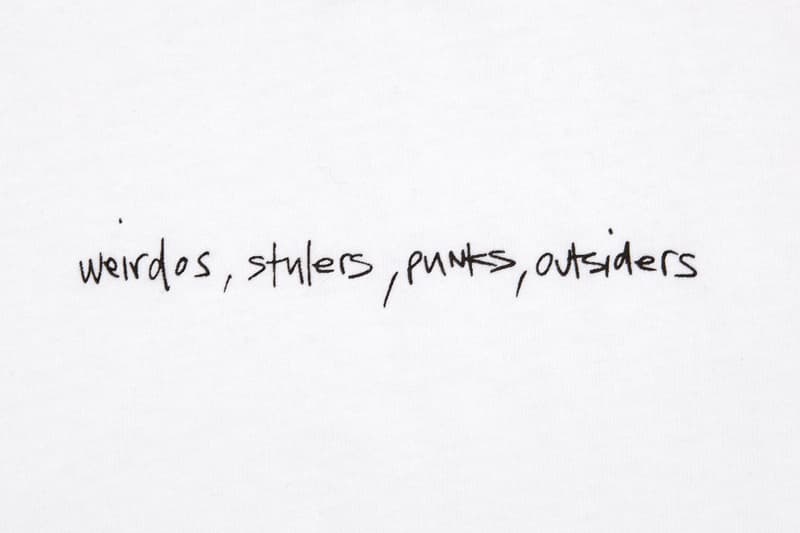 weirdos, stylers, punks, outsiders